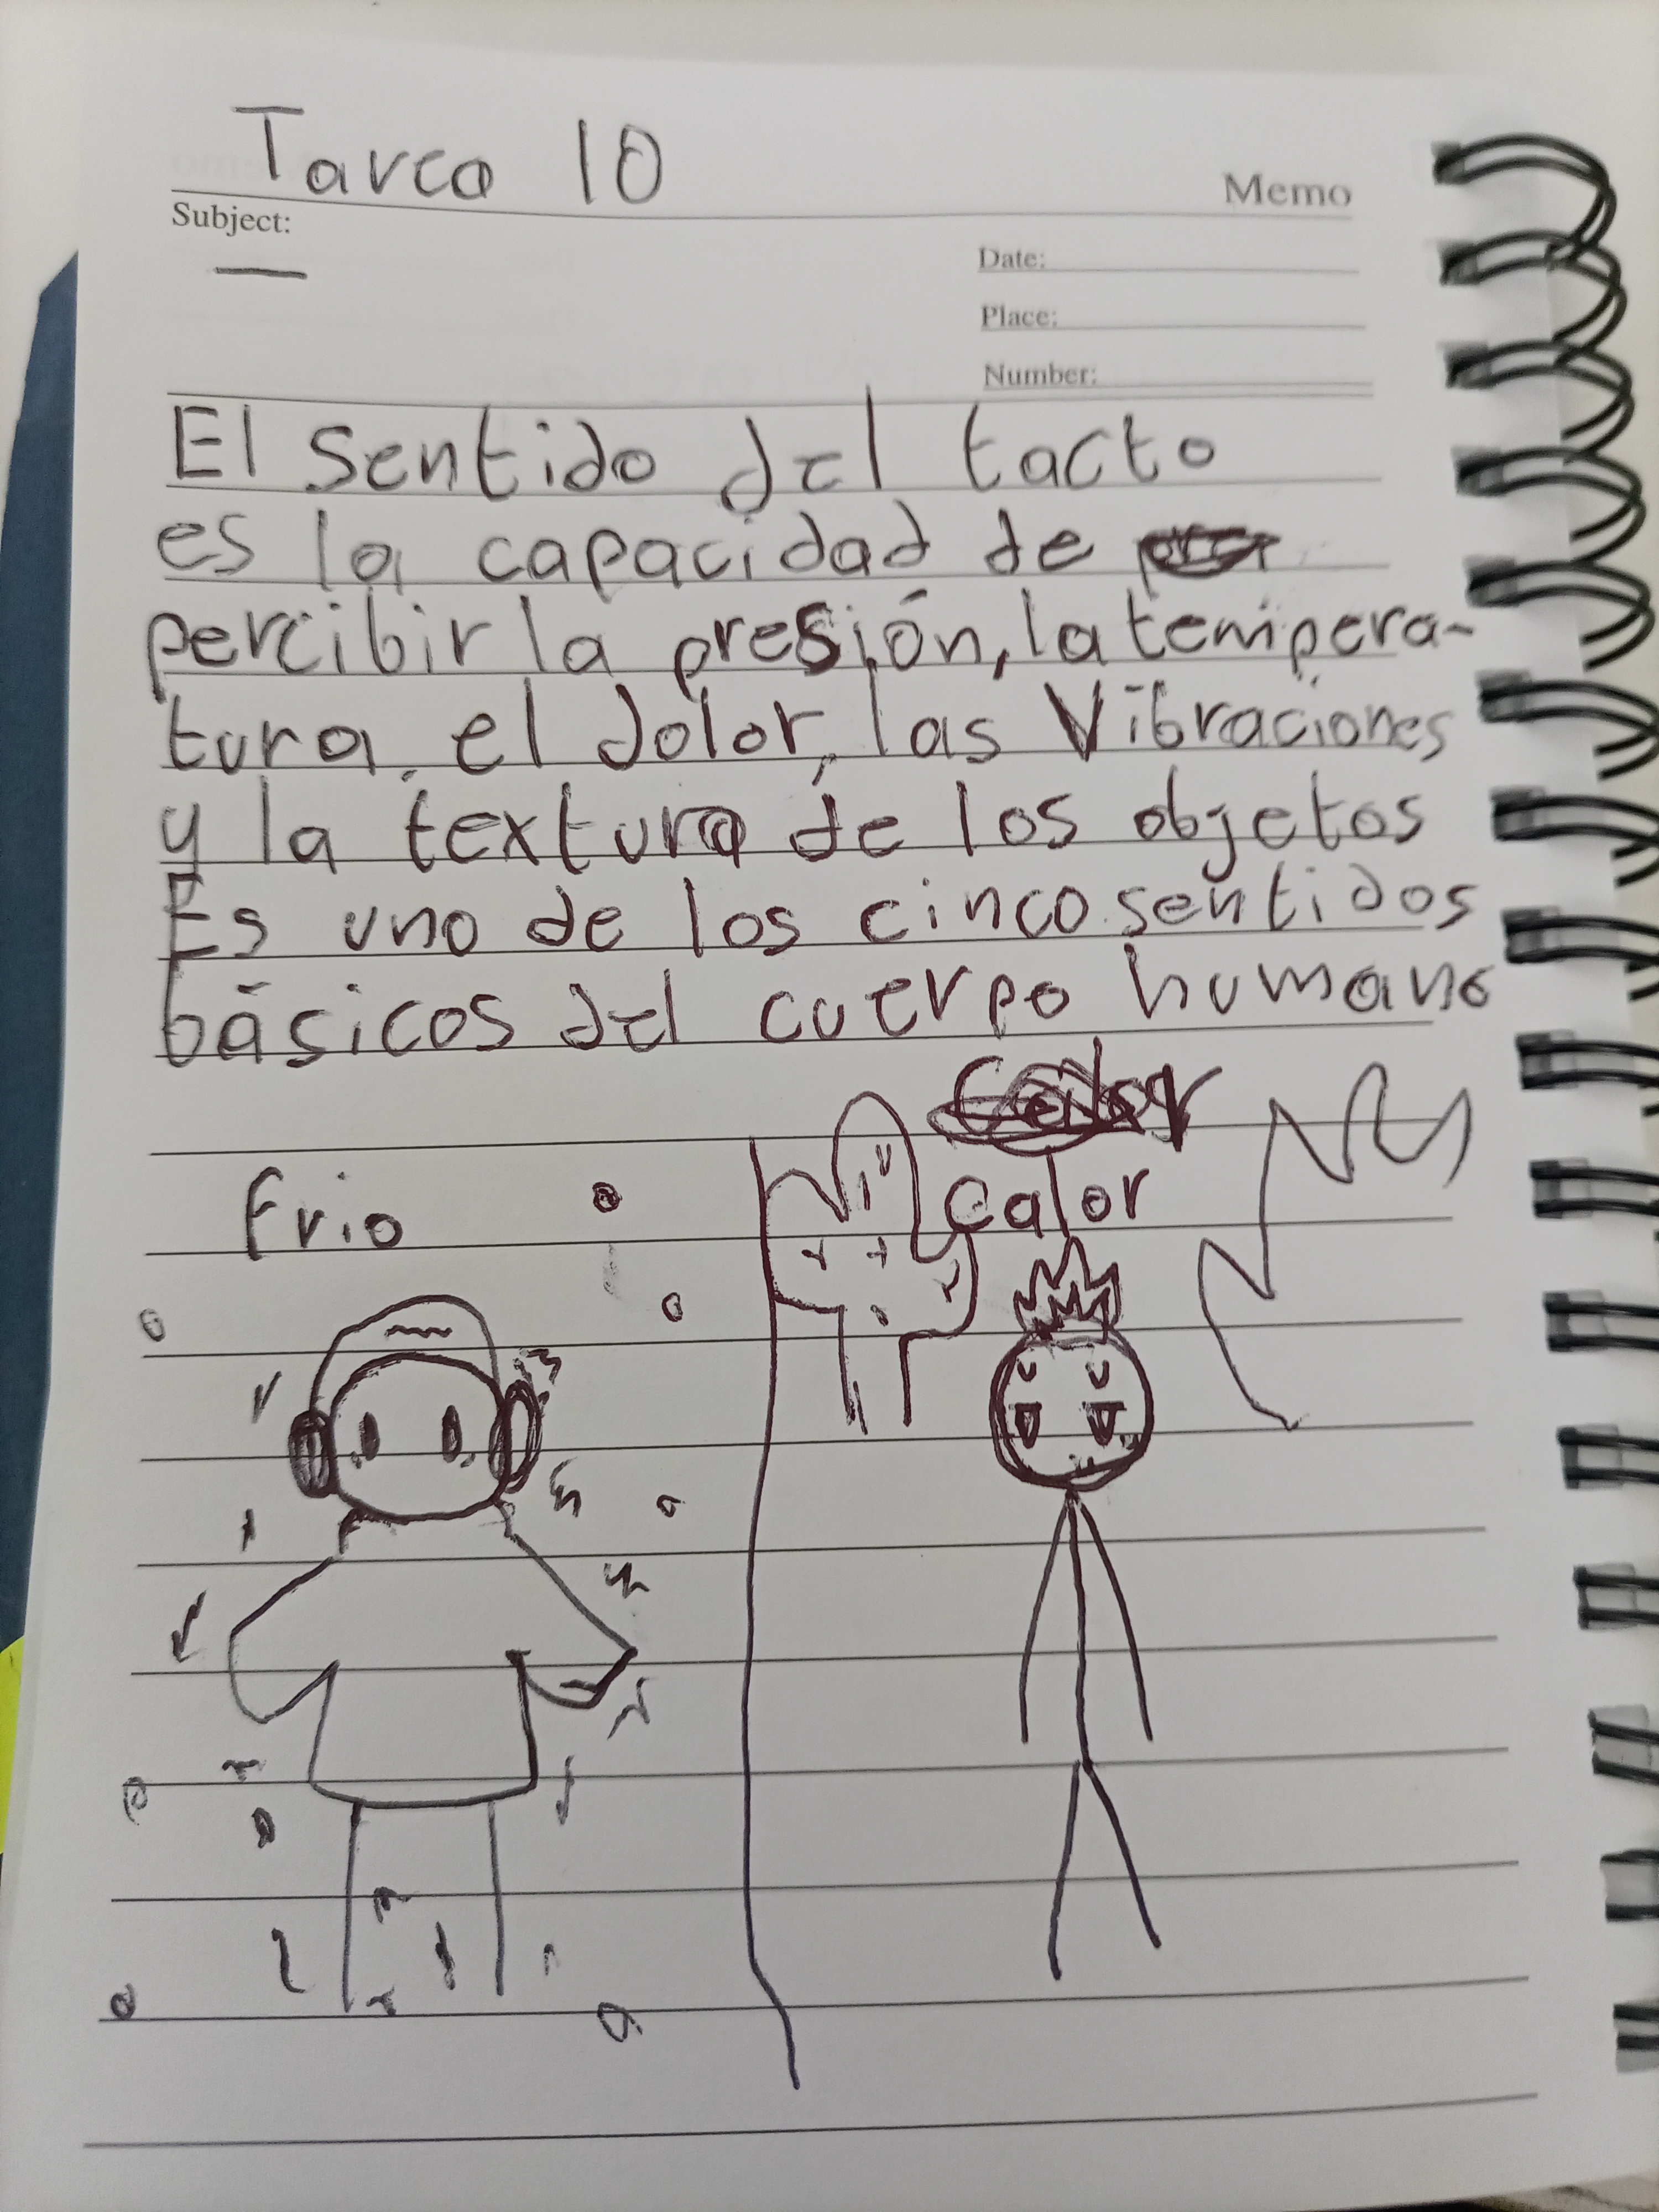 Tarea 10
Memo
Subject:
Date:
Place:
Number:
El sentido del tacto
es la capacidad de
percibir la presión, la tempera-
tura, el dolor, las Vibraciones
y la textura de los objetos
Es uno de los cinco sentidos
básicos del cuerpo humano
frio
calor